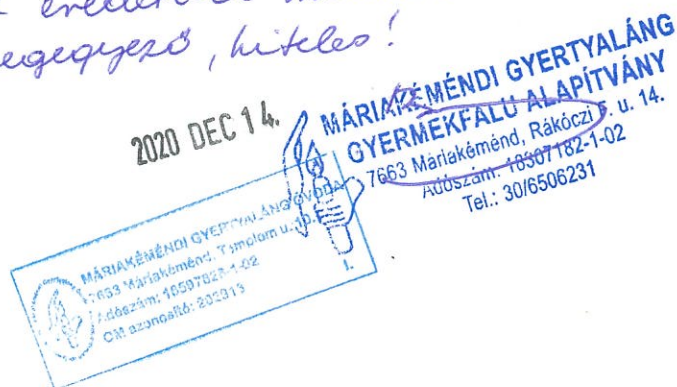 megegyező, hiteles!
2020 DEC 14.
MÁRIAKÉMÉNDI GYERTYALÁNG
GYERMEKFALU ALAPÍTVÁNY
7663 Máriakéménd, Rákóczi F. u. 14.
Adószám: 18307182-1-02
Tel.: 30/6506231
MÁRIAKÉMÉNDI GYERTYALÁNG ÓVODA
7663 Máriakéménd, Templom u.
Adószám:
OM azonosító: 202313
1.